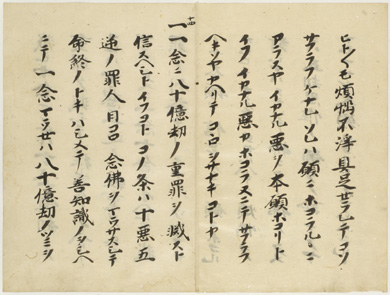 ヒト〱モ煩悩不浄具足セラレテコソ
サフラフケナレソレハ願ニホコラルヽニ
アラスヤイカナル悪ヲ本願ホコリト
イフイカナル悪カホコラヌニテサフラフ
ヘキソヤカヘリテコヽロヲサナキコトカ
十四
一一念ニ八十億劫ノ重罪ヲ滅スト
信スヘシトイフコトコノ条ハ十悪五
逆ノ罪人日コロ念佛ヲマウサスシテ
命終ノトキハシメテ善知識ノヲシヘ
ニテ一念マウセハ八十億劫ノツミヲ